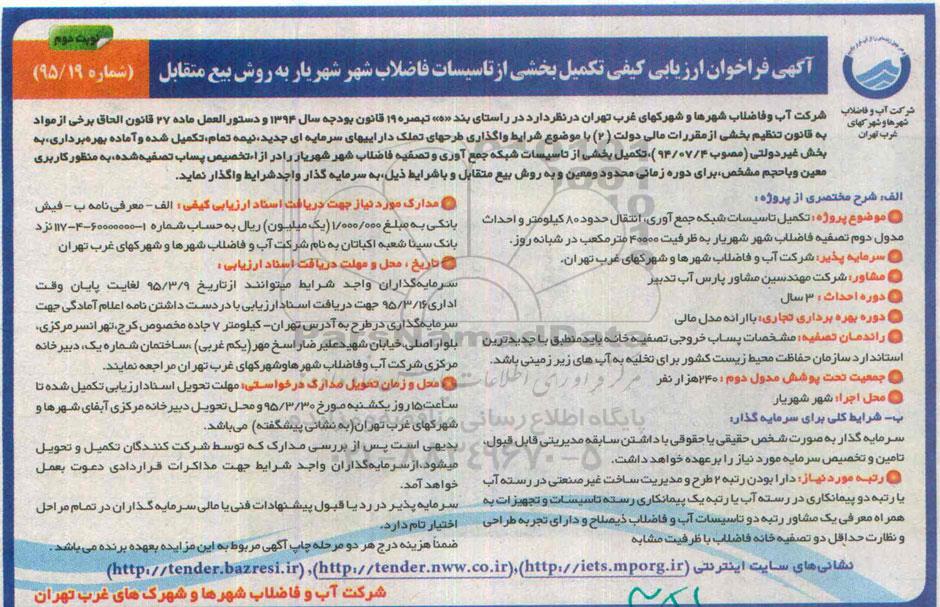 نوبت دوم
آگهی فراخوان ارزیابی کیفی تکمیل بخشی از تاسیسات فاضلاب شهر شهریار به روش بیع متقابل
(شماره ۹۵/۱۹)
شرکت آب و فاضلاب
شهرها و شهرکهای
غرب تهران
شرکت آب وفاضلاب شهرها و شهرکهای غرب تهران درنظردارد در راستای بند «ه» تبصره ۱۹ قانون بودجه سال ۱۳۹۴ و دستورالعمل ماده ۲۷ قانون الحاق برخی از مواد
به قانون تنظیم بخشی از مقررات مالی دولت (۲) با موضوع شرایط واگذاری طرحهای تملک داراییهای سرمایه ای جدید،نیمه تمام،تکمیل شده وآماده بهره‌برداری،به
بخش غیردولتی (مصوب ۹۴/۰۷/۴)،تکمیل بخشی از تاسیسات شبکه جمع آوری و تصفیه فاضلاب شهر شهریار رادر ازا،تخصیص پساب تصفیه‌شده،به منظورکاربری
معین وباحجم مشخص،برای دوره زمانی محدود ومعین و به روش بیع متقابل و باشرایط ذیل،به سرمایه گذار واجدشرایط واگذار نماید.
الف: شرح مختصری از پروژه :
موضوع پروژه : تکمیل تاسیسات شبکه جمع آوری، انتقال حدود ۸۰ کیلومتر و احداث
مدول دوم تصفیه فاضلاب شهر شهریار به ظرفیت ۴۰۰۰۰ مترمکعب در شبانه روز.
سرمایه پذیر: شرکت آب و فاضلاب شهرها و شهرکهای غرب تهران.
مشاور: شرکت مهندسین مشاور پارس آب تدبیر
دوره احداث : ۳ سال
دوره بهره برداری تجاری: باارائه مدل مالی
راندمان تصفیه: مشخصات پساب خروجی تصفیه خانه باید منطبق با جدیدترین
استاندارد سازمان حفاظت محیط زیست کشور برای تخلیه به آب های زیر زمینی باشد.
جمعیت تحت پوشش مدول دوم : ۲۴۰هزار نفر
محل اجرا: شهر شهریار
ب- شرایط کلی برای سرمایه گذار:
سرمایه گذار به صورت شخص حقیقی یا حقوقی با داشتن سابقه مدیریتی قابل قبول،
تامین و تخصیص سرمایه مورد نیاز را برعهده خواهد داشت.
رتبه مورد نیاز: دارا بودن رتبه ۲ طرح و مدیریت ساخت غیرصنعتی در رسته آب
یا رتبه دو پیمانکاری در رسته آب یا رتبه یک پیمانکاری رسته تاسیسات و تجهیزات به
همراه معرفی یک مشاور رتبه دو تاسیسات آب و فاضلاب ذیصلاح و دارای تجربه طراحی
و نظارت حداقل دو تصفیه خانه فاضلاب با ظرفیت مشابه
مدارک مورد نیاز جهت دریافت اسناد ارزیابی کیفی : الف- معرفی نامه ب - فیش
بانکی به مبلغ ۱/۰۰۰/۰۰۰ (یک میلیون) ریال به حساب شماره ۱-۶۰۰۰۰۰۰۰-۴-۱۱۷ نزد
بانک سینا شعبه اکباتان به نام شرکت آب و فاضلاب شهرها و شهرکهای غرب تهران
تاریخ ، محل و مهلت دریافت اسناد ارزیابی :
سرمایه‌گذاران واجد شرایط میتوانند ازتاریخ ۹۵/۳/۹ لغایت پایان وقت
اداری۹۵/۳/۱۶ جهت دریافت اسنادارزیابی با در دست داشتن نامه اعلام آمادگی جهت
سرمایه‌گذاری درطرح به آدرس تهران- کیلومتر ۷ جاده مخصوص کرج،تهرانسرمرکزی،
بلوار اصلی،خیابان شهیدعلیرضااسخ مهر(یکم غربی)،ساختمان شماره یک،دبیرخانه
مرکزی شرکت آب وفاضلاب شهرهاوشهرکهای غرب تهران مراجعه نمایند.
محل و زمان تحویل مدارک درخواستی: مهلت تحویل اسنادارزیابی تکمیل شده تا
ساعت۱۵روز یکشنبه مورخ ۹۵/۳/۳۰ و محل تحویل دبیرخانه مرکزی آبفای شهرها و
شهرکهای غرب تهران(به نشانی پیشگفته) می‌باشد.
بدیهی است پس از بررسی مدارک که توسط شرکت کنندگان تکمیل و تحویل
میشود،از سرمایه‌گذاران واجد شرایط جهت مذاکرات قراردادی دعوت بعمل
خواهد آمد.
سرمایه پذیر در رد یا قبول پیشنهادات فنی یا مالی سرمایه گذاران در تمام مراحل
اختیار تام دارد.
ضمناً هزینه درج هر دو مرحله چاپ آگهی مربوط به این مزایده بعهده برنده می باشد.
نشانی‌های سایت اینترنتی (http://iets.mporg.ir),(http://tender.nww.co.ir),(http://tender.bazresi.ir)
شرکت آب و فاضلاب شهرها و شهرک های غرب تهران